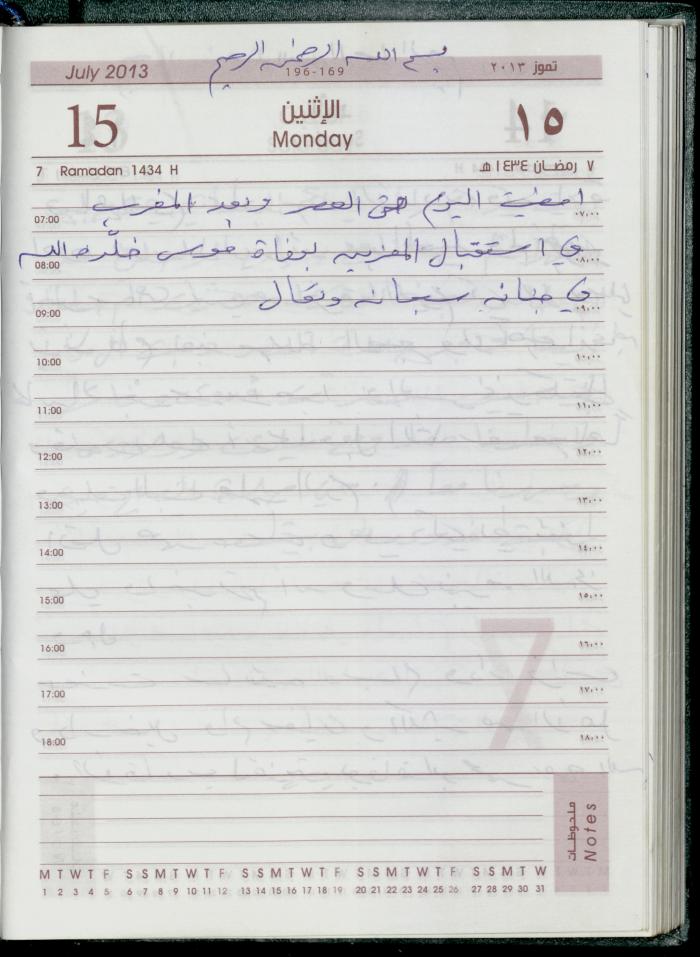 بسم الله الرحمن الرحيم
July 2013
196-169
تموز ٢٠١٣
15
الإثنين
Monday
١٥
7 Ramadan 1434 H
٧ رمضان ١٤٣٤ هـ
امضيت اليوم حتى العصر وبعد المغرب
07:00 ٠٧,٠٠
في استقبال المعزين بوفاة موسى خلّده الله
08:00 ٠٨,٠٠
في جنانه سبحانه وتعالى
09:00 ٠٩,٠٠
10:00 ١٠,٠٠
11:00 ١١,٠٠
12:00 ١٢,٠٠
13:00 ١٣,٠٠
14:00 ١٤,٠٠
15:00 ١٥,٠٠
16:00 ١٦,٠٠
17:00 ١٧,٠٠
18:00 ١٨,٠٠
7
ملحوظات
Notes
M T W T F S S M T W T F S S M T W T F S S M T W T F S S M T W
1 2 3 4 5 6 7 8 9 10 11 12 13 14 15 16 17 18 19 20 21 22 23 24 25 26 27 28 29 30 31